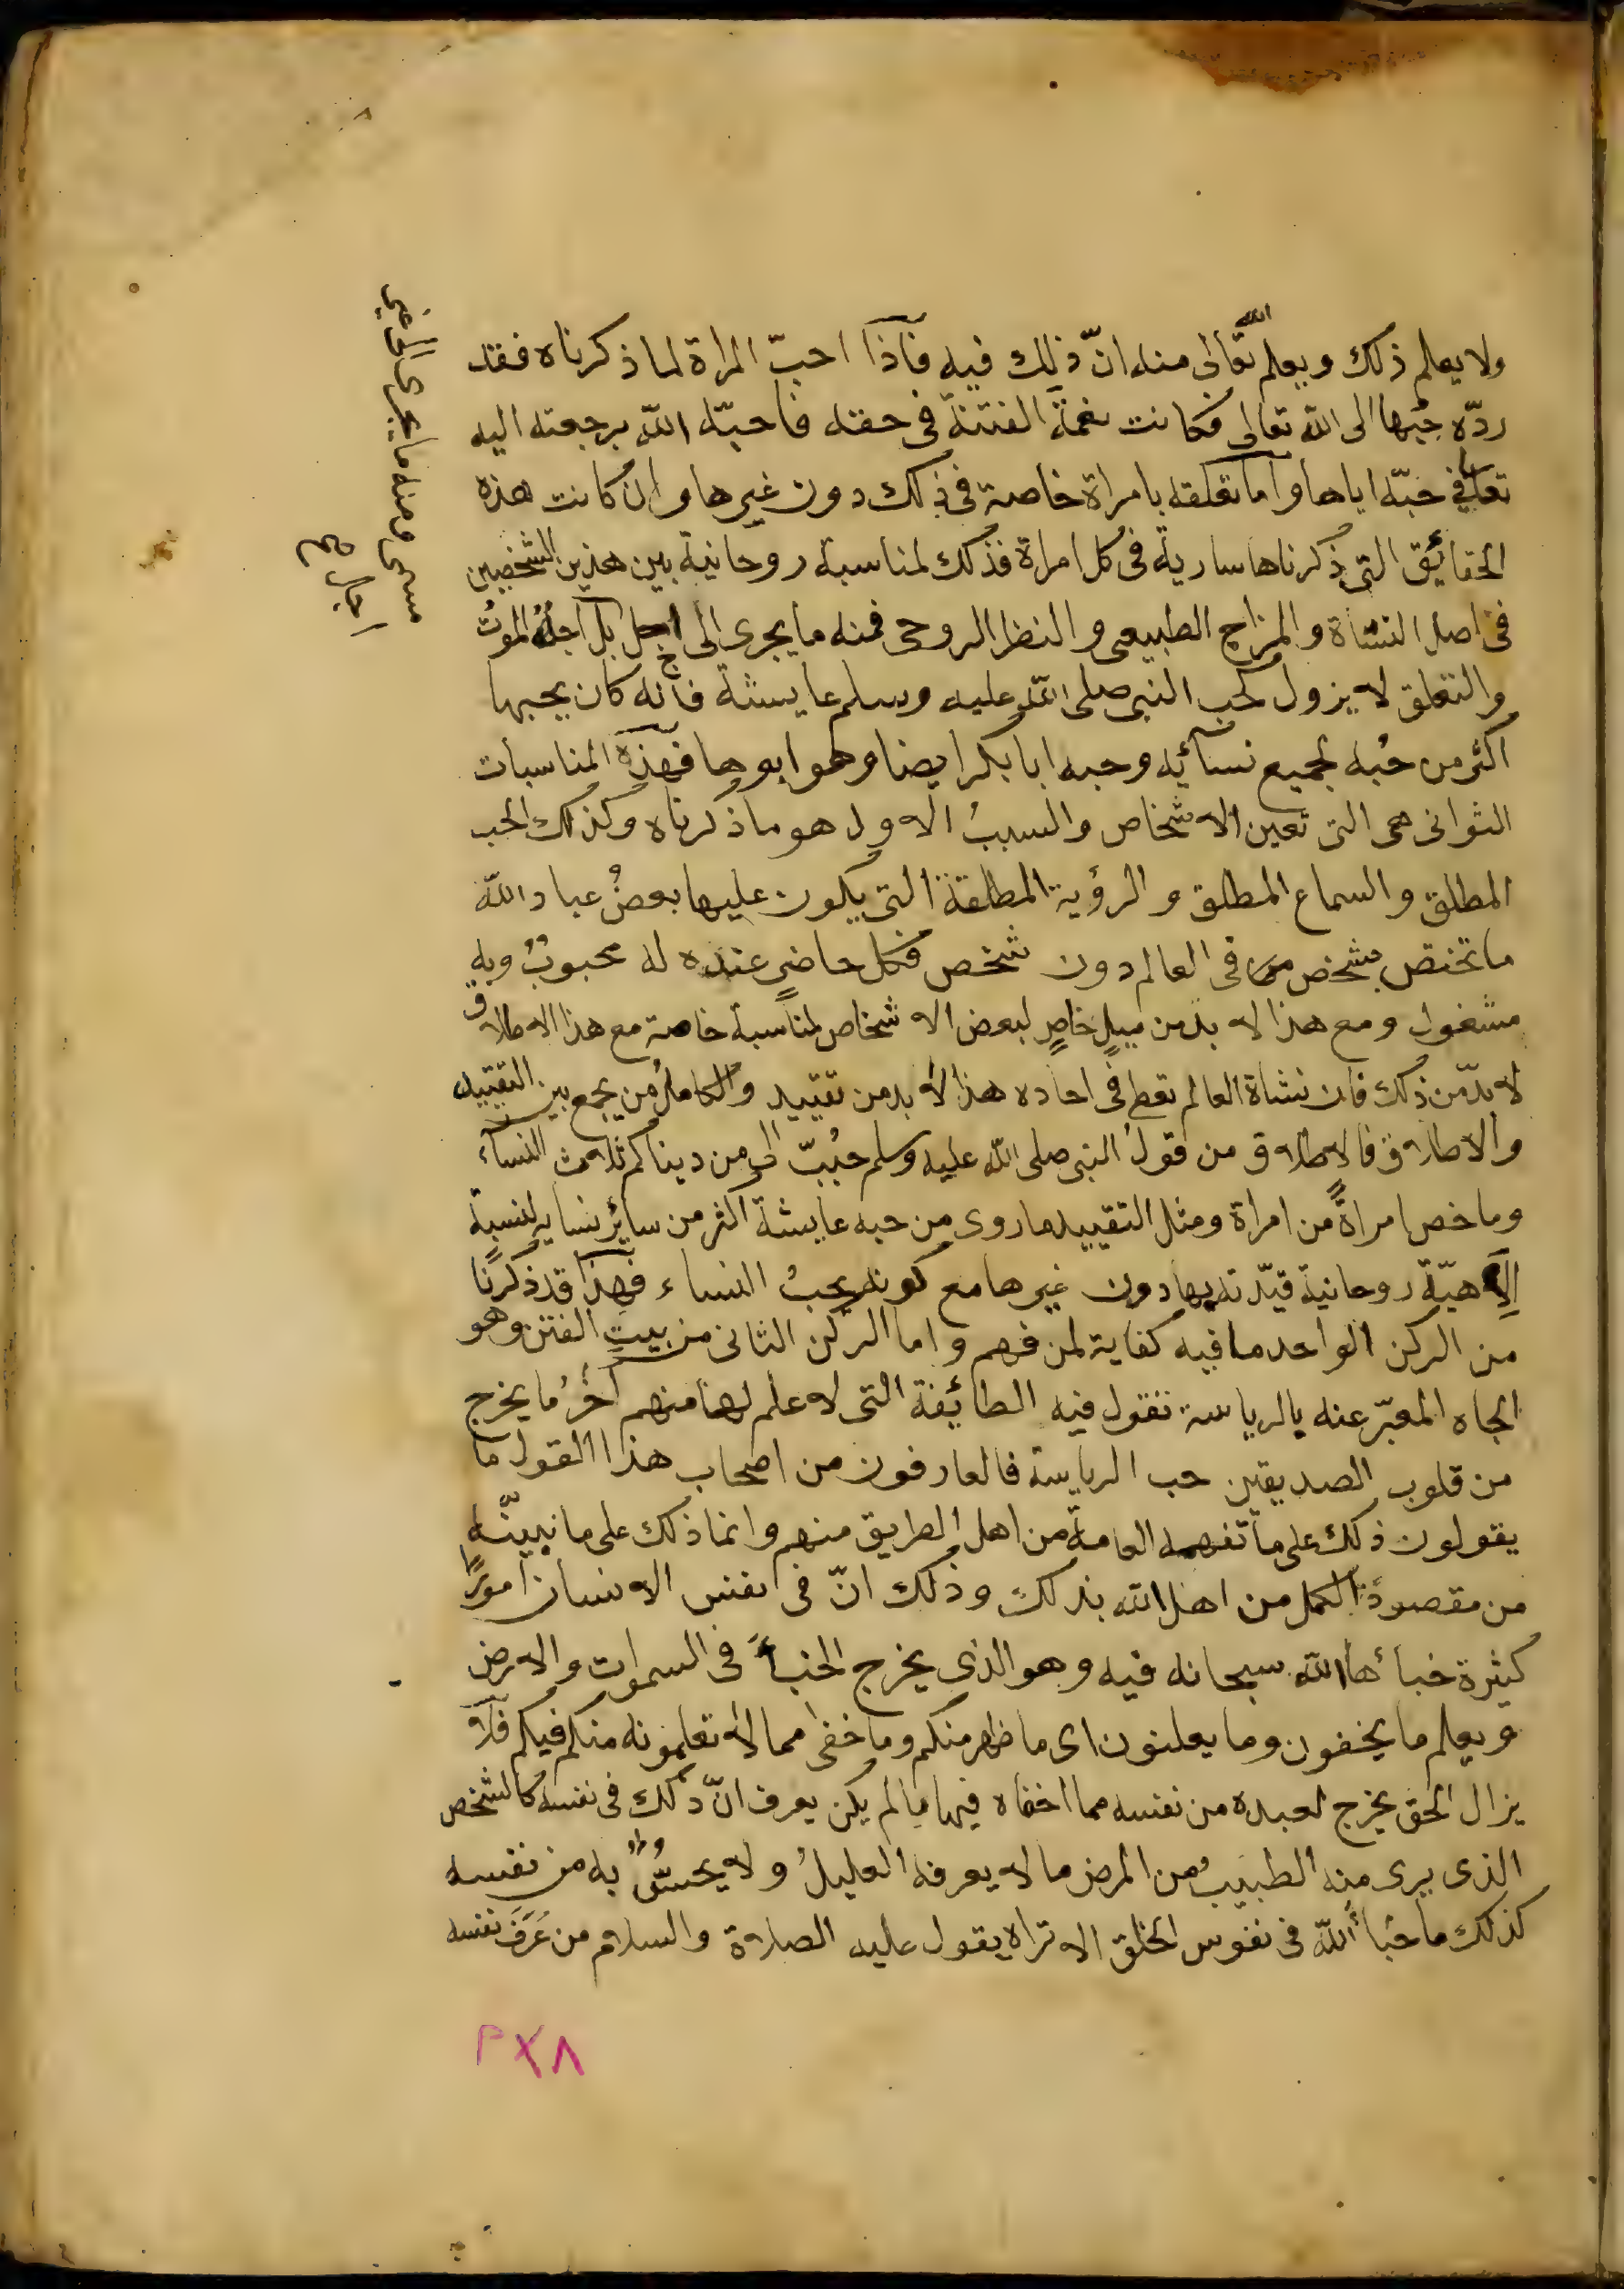 ولا يعلم ذلك ويعلم الله تعالى منه انّ ذلك فيه فاذا احبّ المراة لما ذكرناه فقد
ردّه حبّها الى الله تعالى فكانت نعمة الفتنة فى حقه فاحبّه الله برجعته اليه
تعالى في حبّه اياها واما تعلقه بامراة خاصة فى ذلك دون غيرها وان كانت هذه
الحقائق التى ذكرناها سارية فى كل امراة فذلك لمناسبة روحانية بين هذين الشخصين
فى اصل النشاة والمزاج الطبيعى والنظر الروحى فمنه ما يجرى الى اجل بل اجلهُ الموتُ
والتعلق لا يزول كحب النبى صلى الله عليه وسلم عايشة فانه كان يحبها
اكثر من حُبه لجميع نسائه وحبه ابا بكر ايضا وهو ابوها فهذه المناسبات
الثوانى هى التى تعين الاشخاص والسببُ الاول هو ما ذكرناه وكذلك الحب
المطلق والسماع المطلق والرؤية المطلقة التى يكون عليها بعضُ عباد الله
ما تختص بشخص فى العالم دون شخص فكل حاضرٍ عنده له محبوبٌ وبه
مشغول ومع هذا لا بد من ميلٍ خاصٍ لبعض الاشخاص لمناسبة خاصة مع هذا الاطلاق
لا بدّ من ذلك فان نشاة العالم تعطى فى احاده هذا لا بد من تقييد والكاملُ من يجمع بين التقييد
والاطلاق فالاطلاق من قول النبى صلى الله عليه وسلم حُبِّبَ الى من دنياكم ثلاث النساء
وما خص امراةً من امراة ومثل التقييد ما روى من حبه عايشة اكثر من ساير نسايه لنسبة
الاهيّة روحانية قيّدته بها دون غيرها مع كونه يحبُ النساء فهذا قد ذكرنا
من الركن الواحد ما فيه كفاية لمن فهم واما الركن الثانى من بيت الفتن وهو
الجاه المعبّر عنه بالرياسة تقول فيه الطائفة التى لا علم لها منهم آخرُ ما يخرج
من قلوب الصديقين حب الرياسة فالعارفون من اصحاب هذا القول ما
يقولون ذلك على ما تفهمه العامة من اهل الطريق منهم وانما ذلك على ما نبينّه
من مقصود الكمل من اهل الله بذلك وذلك انّ فى نفس الانسان امورًا
كثيرة خبأها الله سبحانه فيه وهو الذى يخرج الخبأَ فى السموات والارض
ويعلم ما يخفون وما يعلنون اى ما ظهر منكم وما خفى مما لا تعلمونه منكم فيكم فلا
يزال الحق يخرج لعبده من نفسه مما اخفاه فيها ما لم يكن يعرف انّ ذلك فى نفسه كالشخص
الذى يرى منه الطبيبُ من المرض ما لا يعرفه العليلُ ولا يحسُّ به من نفسه
كذلك ما خبأ الله فى نفوس الخلق الا تراه يقول عليه الصلاة والسلام من عَرَفَ نفسه
مسمى ومنه ما يجرى الى غير
اجل صح
٣٢٨